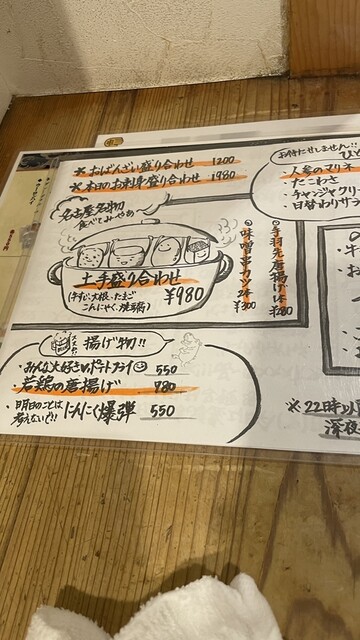 ※おばんざい盛り合わせ 1200
※本日のお刺身盛り合わせ 1980
名古屋名物
食べてみやぁ〜
土手盛り合わせ
(牛すじ・大根・たまご
こんにゃく・焼豆腐)
¥980
・手羽先唐揚げ 1本 ¥280
・味噌串カツ 2本 ¥300
お待たせしません!!
・人参のマリネ
・たこわさ
・チャンジャクリ
・日替わりサラ
揚げ物!!
・みんな大好きめポテトフライ 550
・若鶏の唐揚げ 780
・明日のことは考えないで!! にんにく爆弾 550
※22時以
深夜